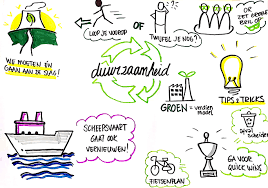 LOOP JE VOOROP
OF
TWIJFEL JE NOG?
OF
ZET GROENE
BRIL OP
WE MOETEN EN
GAAN AAN ZE SLAG!
duurzaamheid
GROEN = verdien
model
TIPS & TRICKS
SCHEEPSVAART
GAAT OOK
VERNIEUWEN!
afval
scheiden
FIETSENPLAN
GA VOOR
QUICK WINS